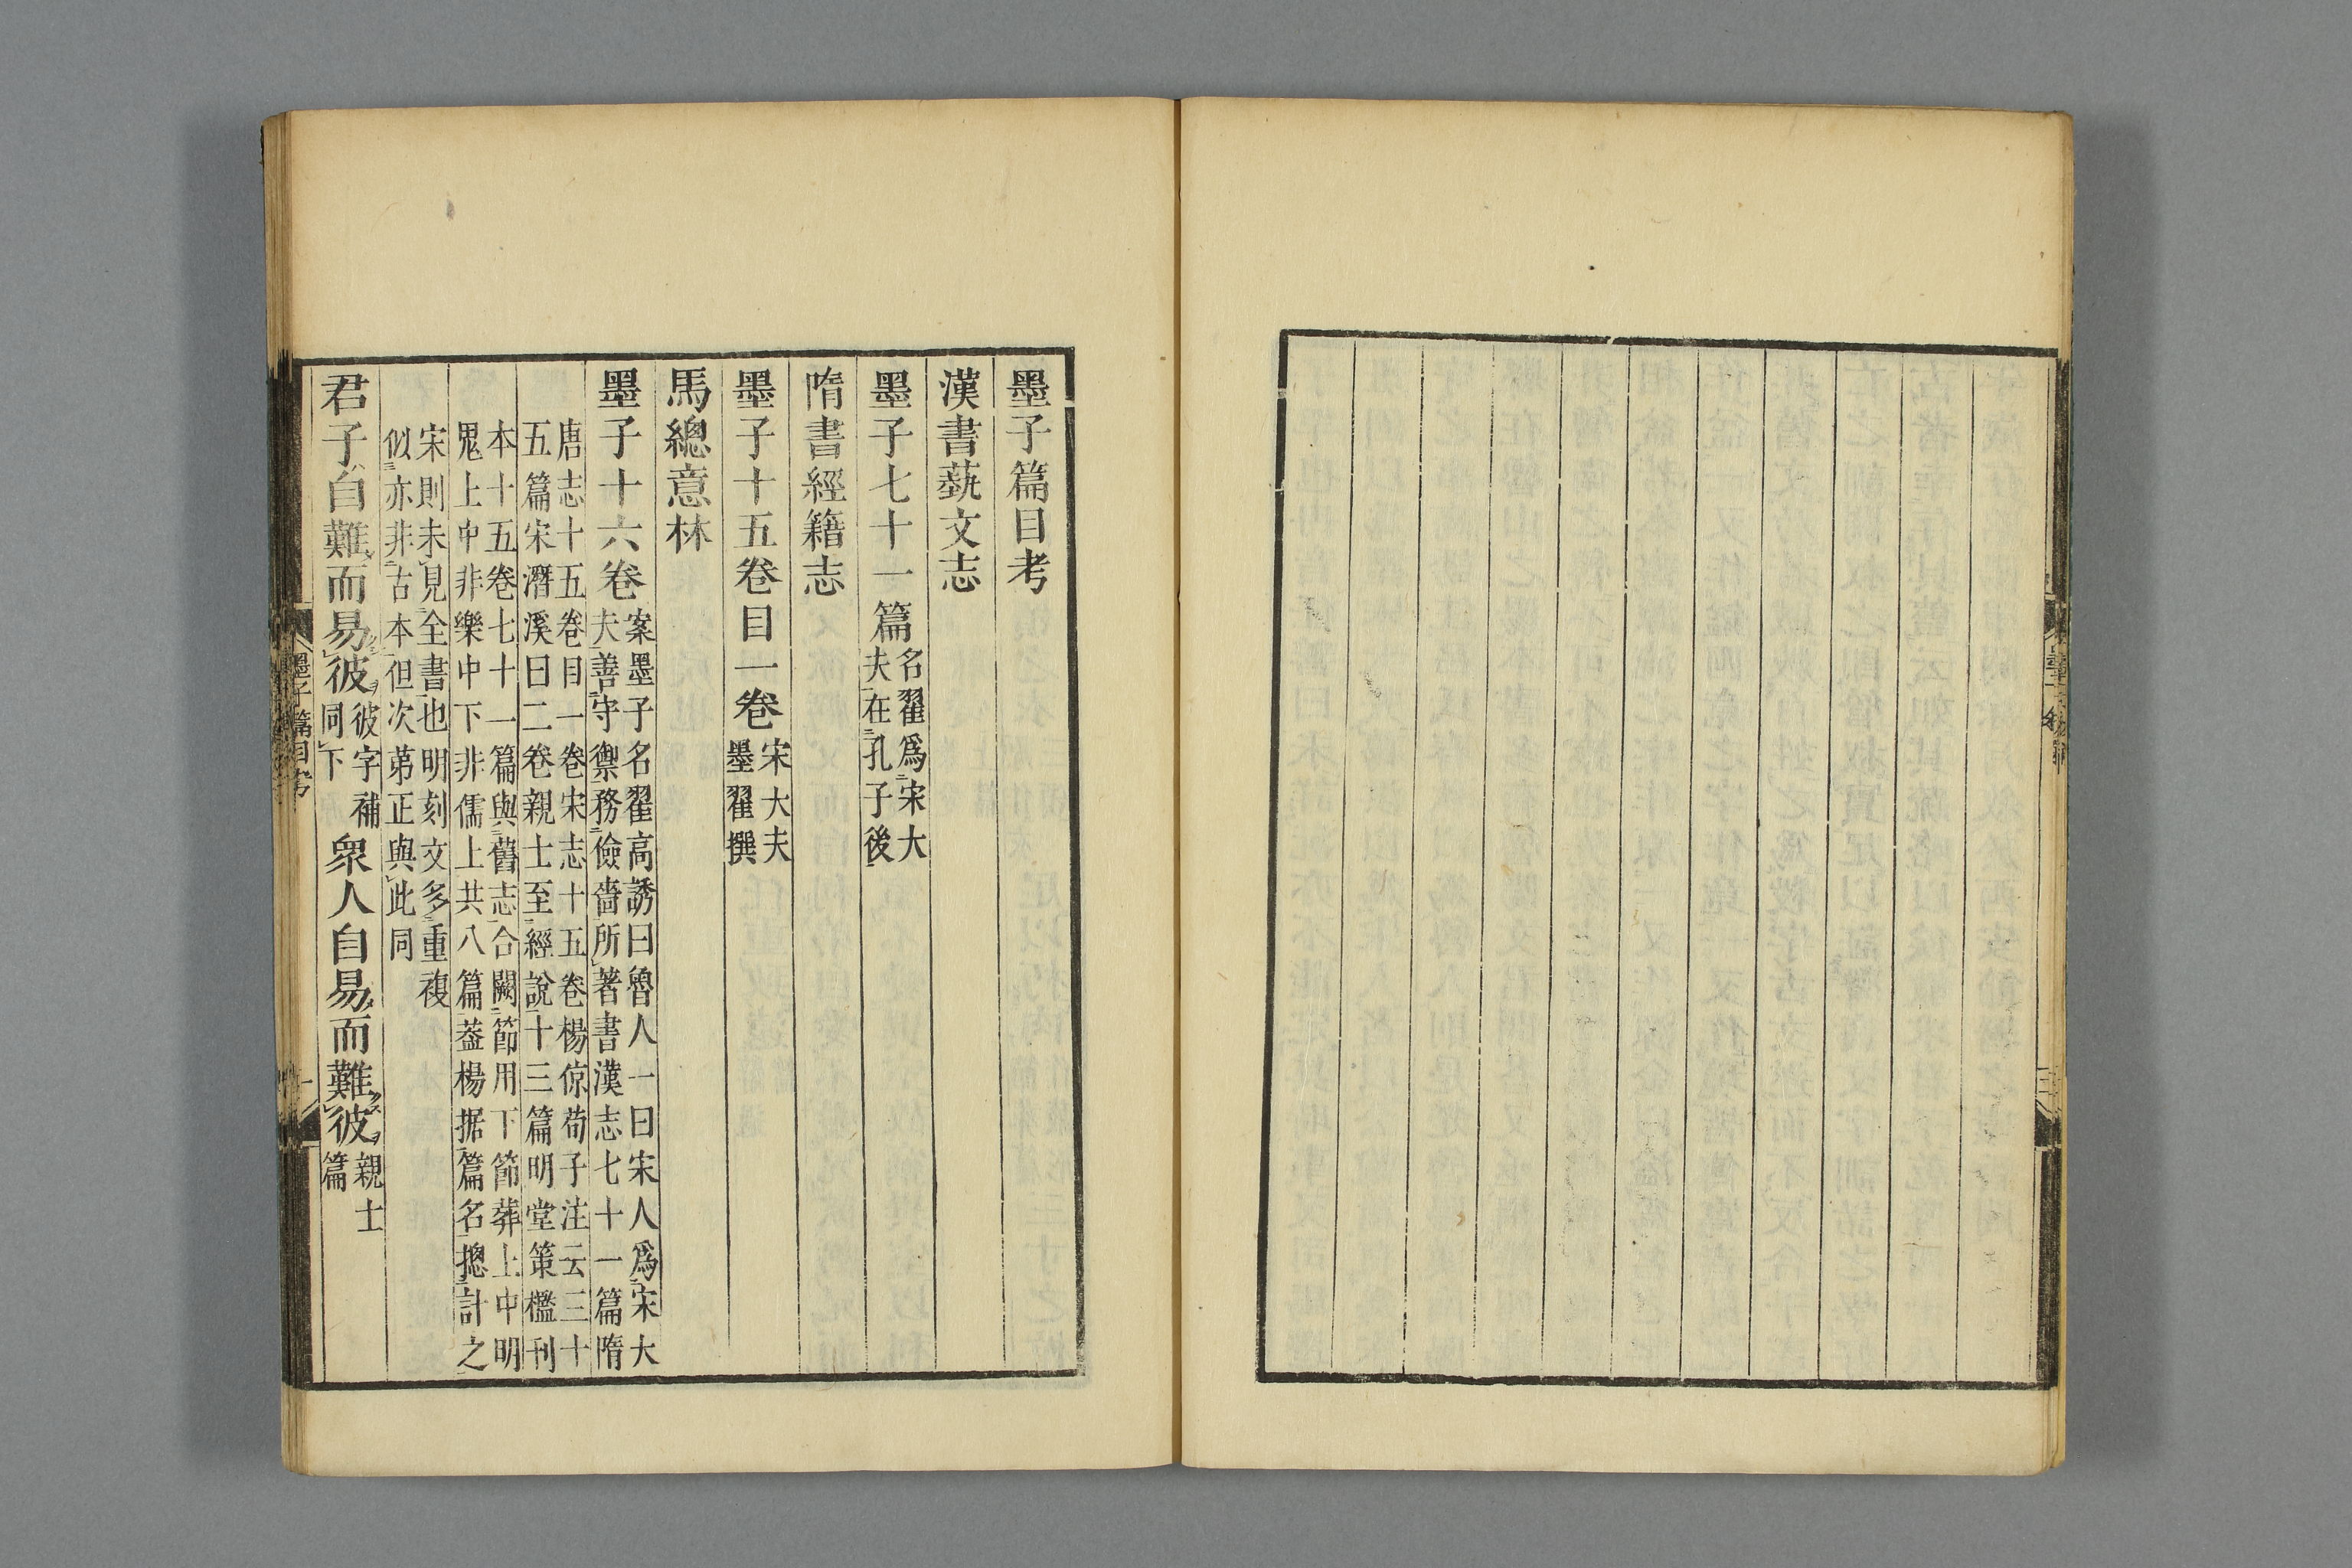 墨子篇目考
漢書蓺文志
墨子七十一篇名翟爲宋大
夫在孔子後
隋書經籍志
墨子十五卷目一卷宋大夫
墨翟撰
馬總意林
墨子十六卷案墨子名翟高誘曰魯人一曰宋人爲宋大
夫善守禦務儉嗇所著書漢志七十一篇隋
唐志十五卷目一卷宋志十五卷楊倞荀子注云三十
五篇宋潛溪曰二卷親士至經說十三篇明堂策檻刊
本十五卷七十一篇與舊志合闕節用下節葬上中明
鬼上中非樂中下非儒上共八篇葢楊据篇名摠計之
宋則未見全書也明刻文多重複
似亦非古本但次苐正與此同
君子自難而易彼彼字補
同下衆人自易而難彼親士
篇
墨子篇目考
一
三